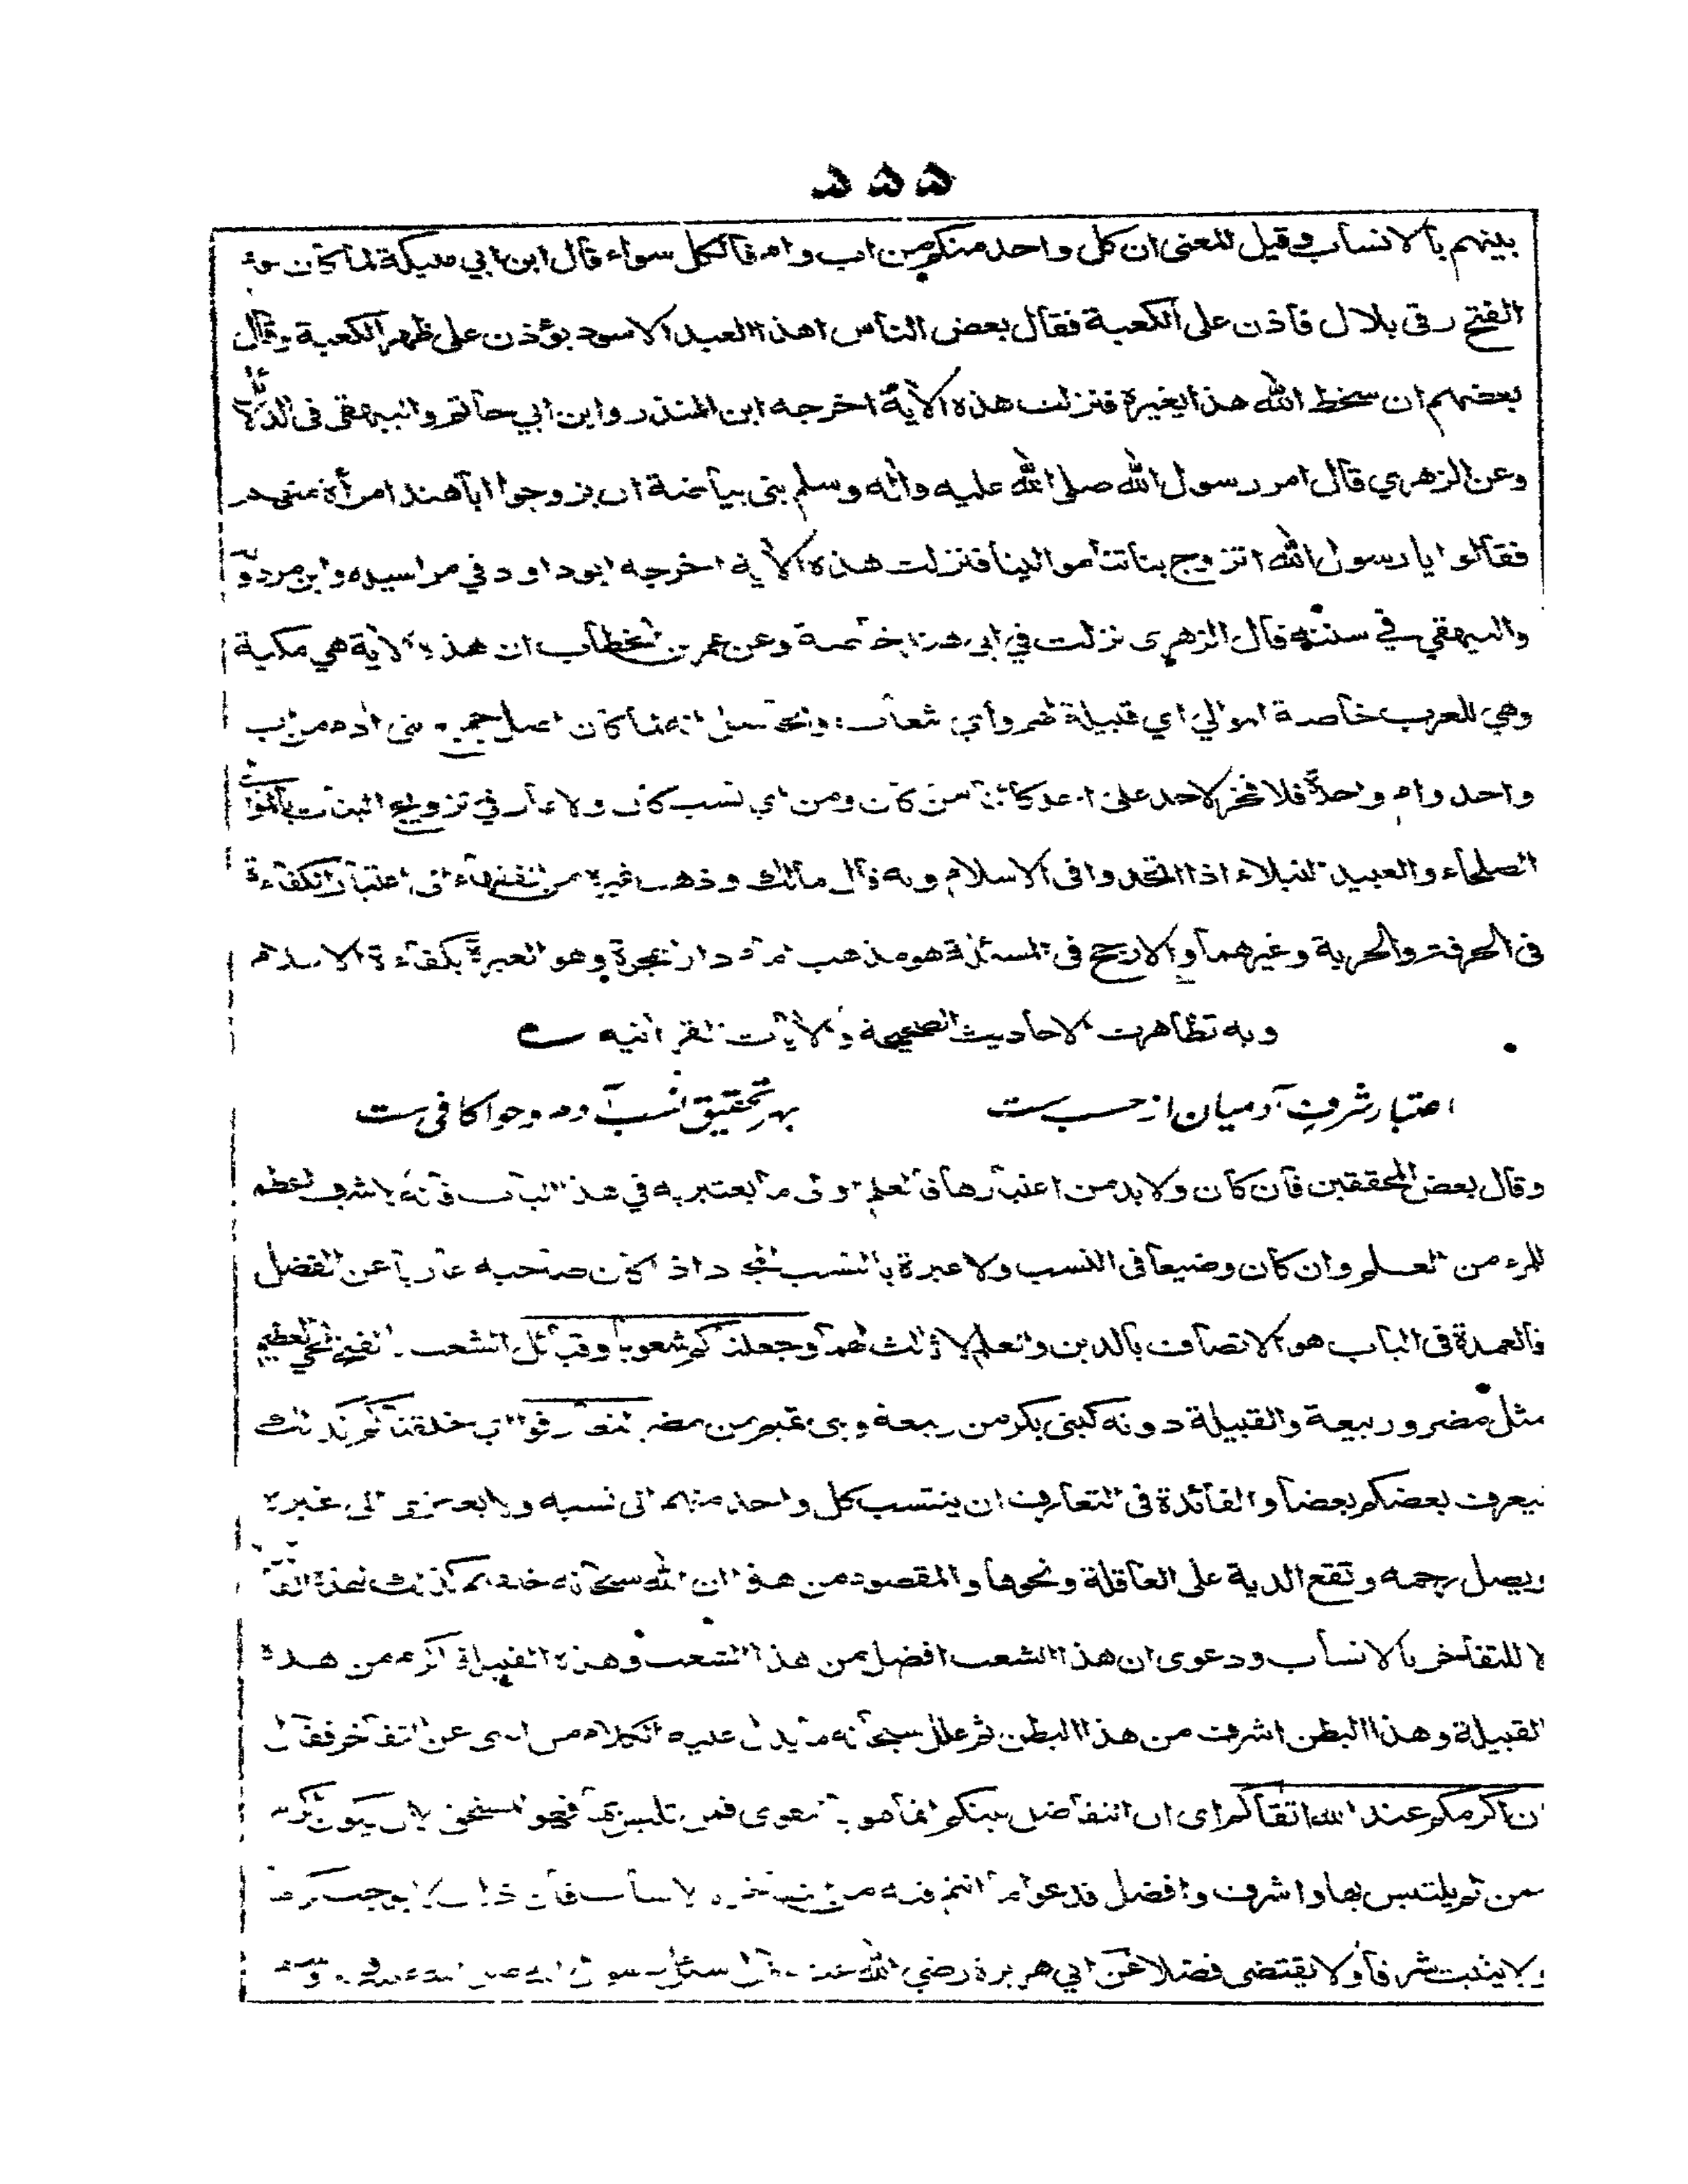 ۵۵۵
بينهم بالانساب وقيل المعنى ان كل واحد منكم من اب وام فالكل سواء قال ابن ابي مليكة لما كان يوم
الفتح رقى بلال فاذن على الكعبة فقال بعض الناس اهذا العبد الاسود يؤذن على ظهر الكعبة وقال
بعضهم ان سخط الله هذا يغيرة فنزلت هذه الآية اخرجه ابن المنذر وابن ابي حاتم والبيهقى فى الدلائل
وعن الزهري قال امر رسول الله صلى الله عليه واله وسلم بنى بياضة ان يزوجوا ابا هند امرأة منهم
فقالوا يا رسول الله اتزوج بناتنا موالينا فنزلت هذه الآية اخرجه ابو داود في مراسيله وابن مردويه
والبيهقي في سننه قال الزهري نزلت في ابي هند خاصة وعن عمر بن الخطاب ان هذه الآية هي مكية
وهي للعرب خاصة الموالي اي قبيلة لهم واي شعاب والحاصل انه لما كان اصل جميع بنى ادم من اب
واحد وام واحدة فلا فخر لاحد على احد كائنا من كان ومن اي نسب كان ولا عار في تزويج البنات بالموالي
الصلحاء والعبيد النبلاء اذا اتحدوا فى الاسلام وبه قال مالك وذهب غيره من الفقهاء الى اعتبار الكفاءة
فى الحرفة والحرية وغيرهما والارجح فى المسئلة هو مذهب امام دار الهجرة وهو العبرة بكفاءة الاسلام
وبه تظاهرت الاحاديث الصحيحة والآيات القرآنيه
اعتبار شرف آدميان از حسب ست بهر تحقيق نسب آدم وحوا كافى ست
وقال بعض المحققين فان كان ولا بد من اعتبارها فالعلم اولى ما يعتبر به في هذا الباب فانه لا شرف اعظم
للمرء من العلم وان كان وضيعا فى النسب ولا عبرة بالنسب المجرد اذا كان صاحبه عاريا عن الفضل
فالعمدة فى الباب هو الاتصاف بالدين والعلم لا ثالث لهما وجعلناكم شعوبا وقبائل الشعب بالفتح الحي العظيم
مثل مضر وربيعة والقبيلة دونه كبنى بكر من ربيعة وبنى تميم من مضر لتعارفوا اي خلقناكم كذلك
ليعرف بعضكم بعضا والفائدة فى التعارف ان ينتسب كل واحد منهم الى نسبه ولا يعتزى الى غيره
ويصل رحمه وتقع الدية على العاقلة ونحوها والمقصود من هذا ان الله سبحانه خلقهم كذلك لهذه الفائدة
لا للتفاخر بالانساب ودعوى ان هذا الشعب افضل من هذا الشعب وهذه القبيلة اكرم من هذه
القبيلة وهذا البطن اشرف من هذا البطن ثم علل سبحانه ما يدل عليه الكلام من النهى عن التفاخر فقال
ان اكرمكم عند الله اتقاكم اى ان التفاضل بينكم انما هو بالتقوى فمن تلبس بها فهو المستحق لان يكون اكرم
ممن لم يلتبس بها واشرف وافضل فدعوا ما انتم فيه من التفاخر بالانساب فان ذلك لا يوجب كرما
ولا يثبت شرفا ولا يقتضى فضلا عن ابي هريرة رضي الله عنه قال سئل رسول الله صلى الله عليه واله وسلم